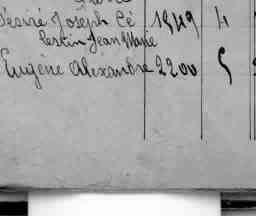 Désiré Joseph Cé 1949 4
lestin Jean Marie
Eugène Alexandre 2200 5